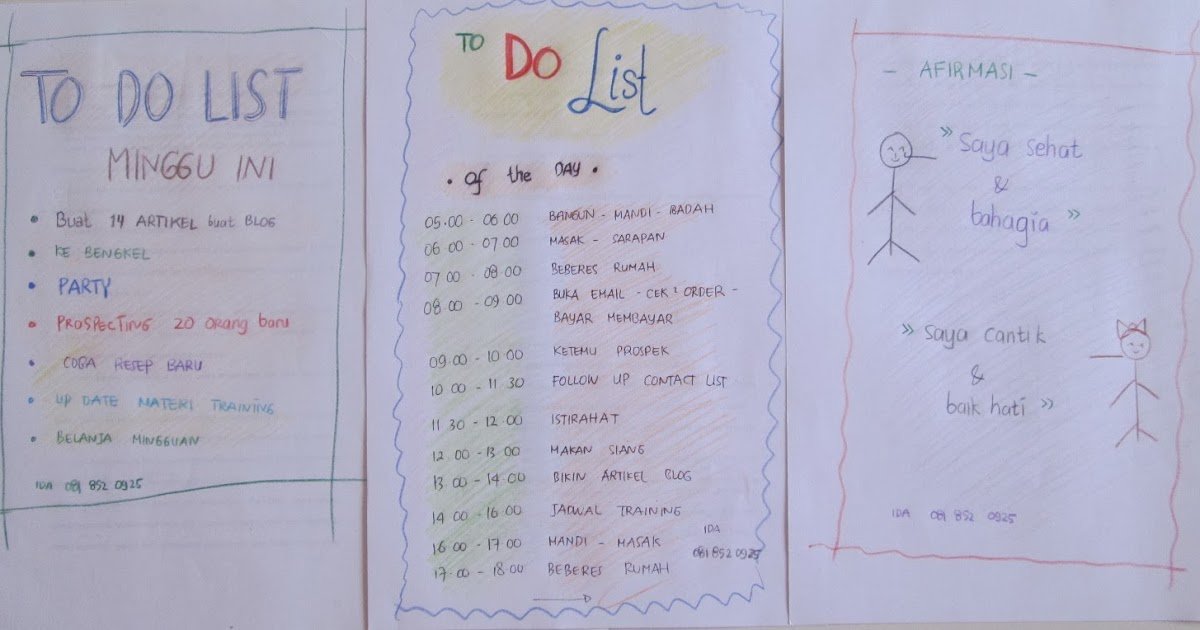 TO DO LIST
MINGGU INI
• Buat 14 ARTIKEL buat BLOG
• KE BENGKEL
• PARTY
• PROSPECTING 20 orang baru
• COBA RESEP BARU
• UP DATE MATERI TRAINING
• BELANJA MINGGUAN
IDA 081 852 0925
TO DO List
• of the DAY •
05.00 - 06 00 BANGUN - MANDI - IBADAH
06 00 - 07 00 MASAK - SARAPAN
07 00 - 08 00 BEBERES RUMAH
08.00 - 09 00 BUKA EMAIL - CEK² ORDER -
BAYAR MEMBAYAR
09.00 - 10 00 KETEMU PROSPEK
10 00 - 11 30 FOLLOW UP CONTACT LIST
11 30 - 12.00 ISTIRAHAT
12 00 - 13 00 MAKAN SIANG
13.00 - 14.00 BIKIN ARTIKEL BLOG
14 00 - 16 00 JADWAL TRAINING
16 00 - 17 00 MANDI - MASAK
17.00 - 18.00 BEBERES RUMAH
IDA
081 852 0925
- AFIRMASI -
» Saya sehat
&
bahagia »
» Saya cantik
&
baik hati »
IDA 081 852 0925